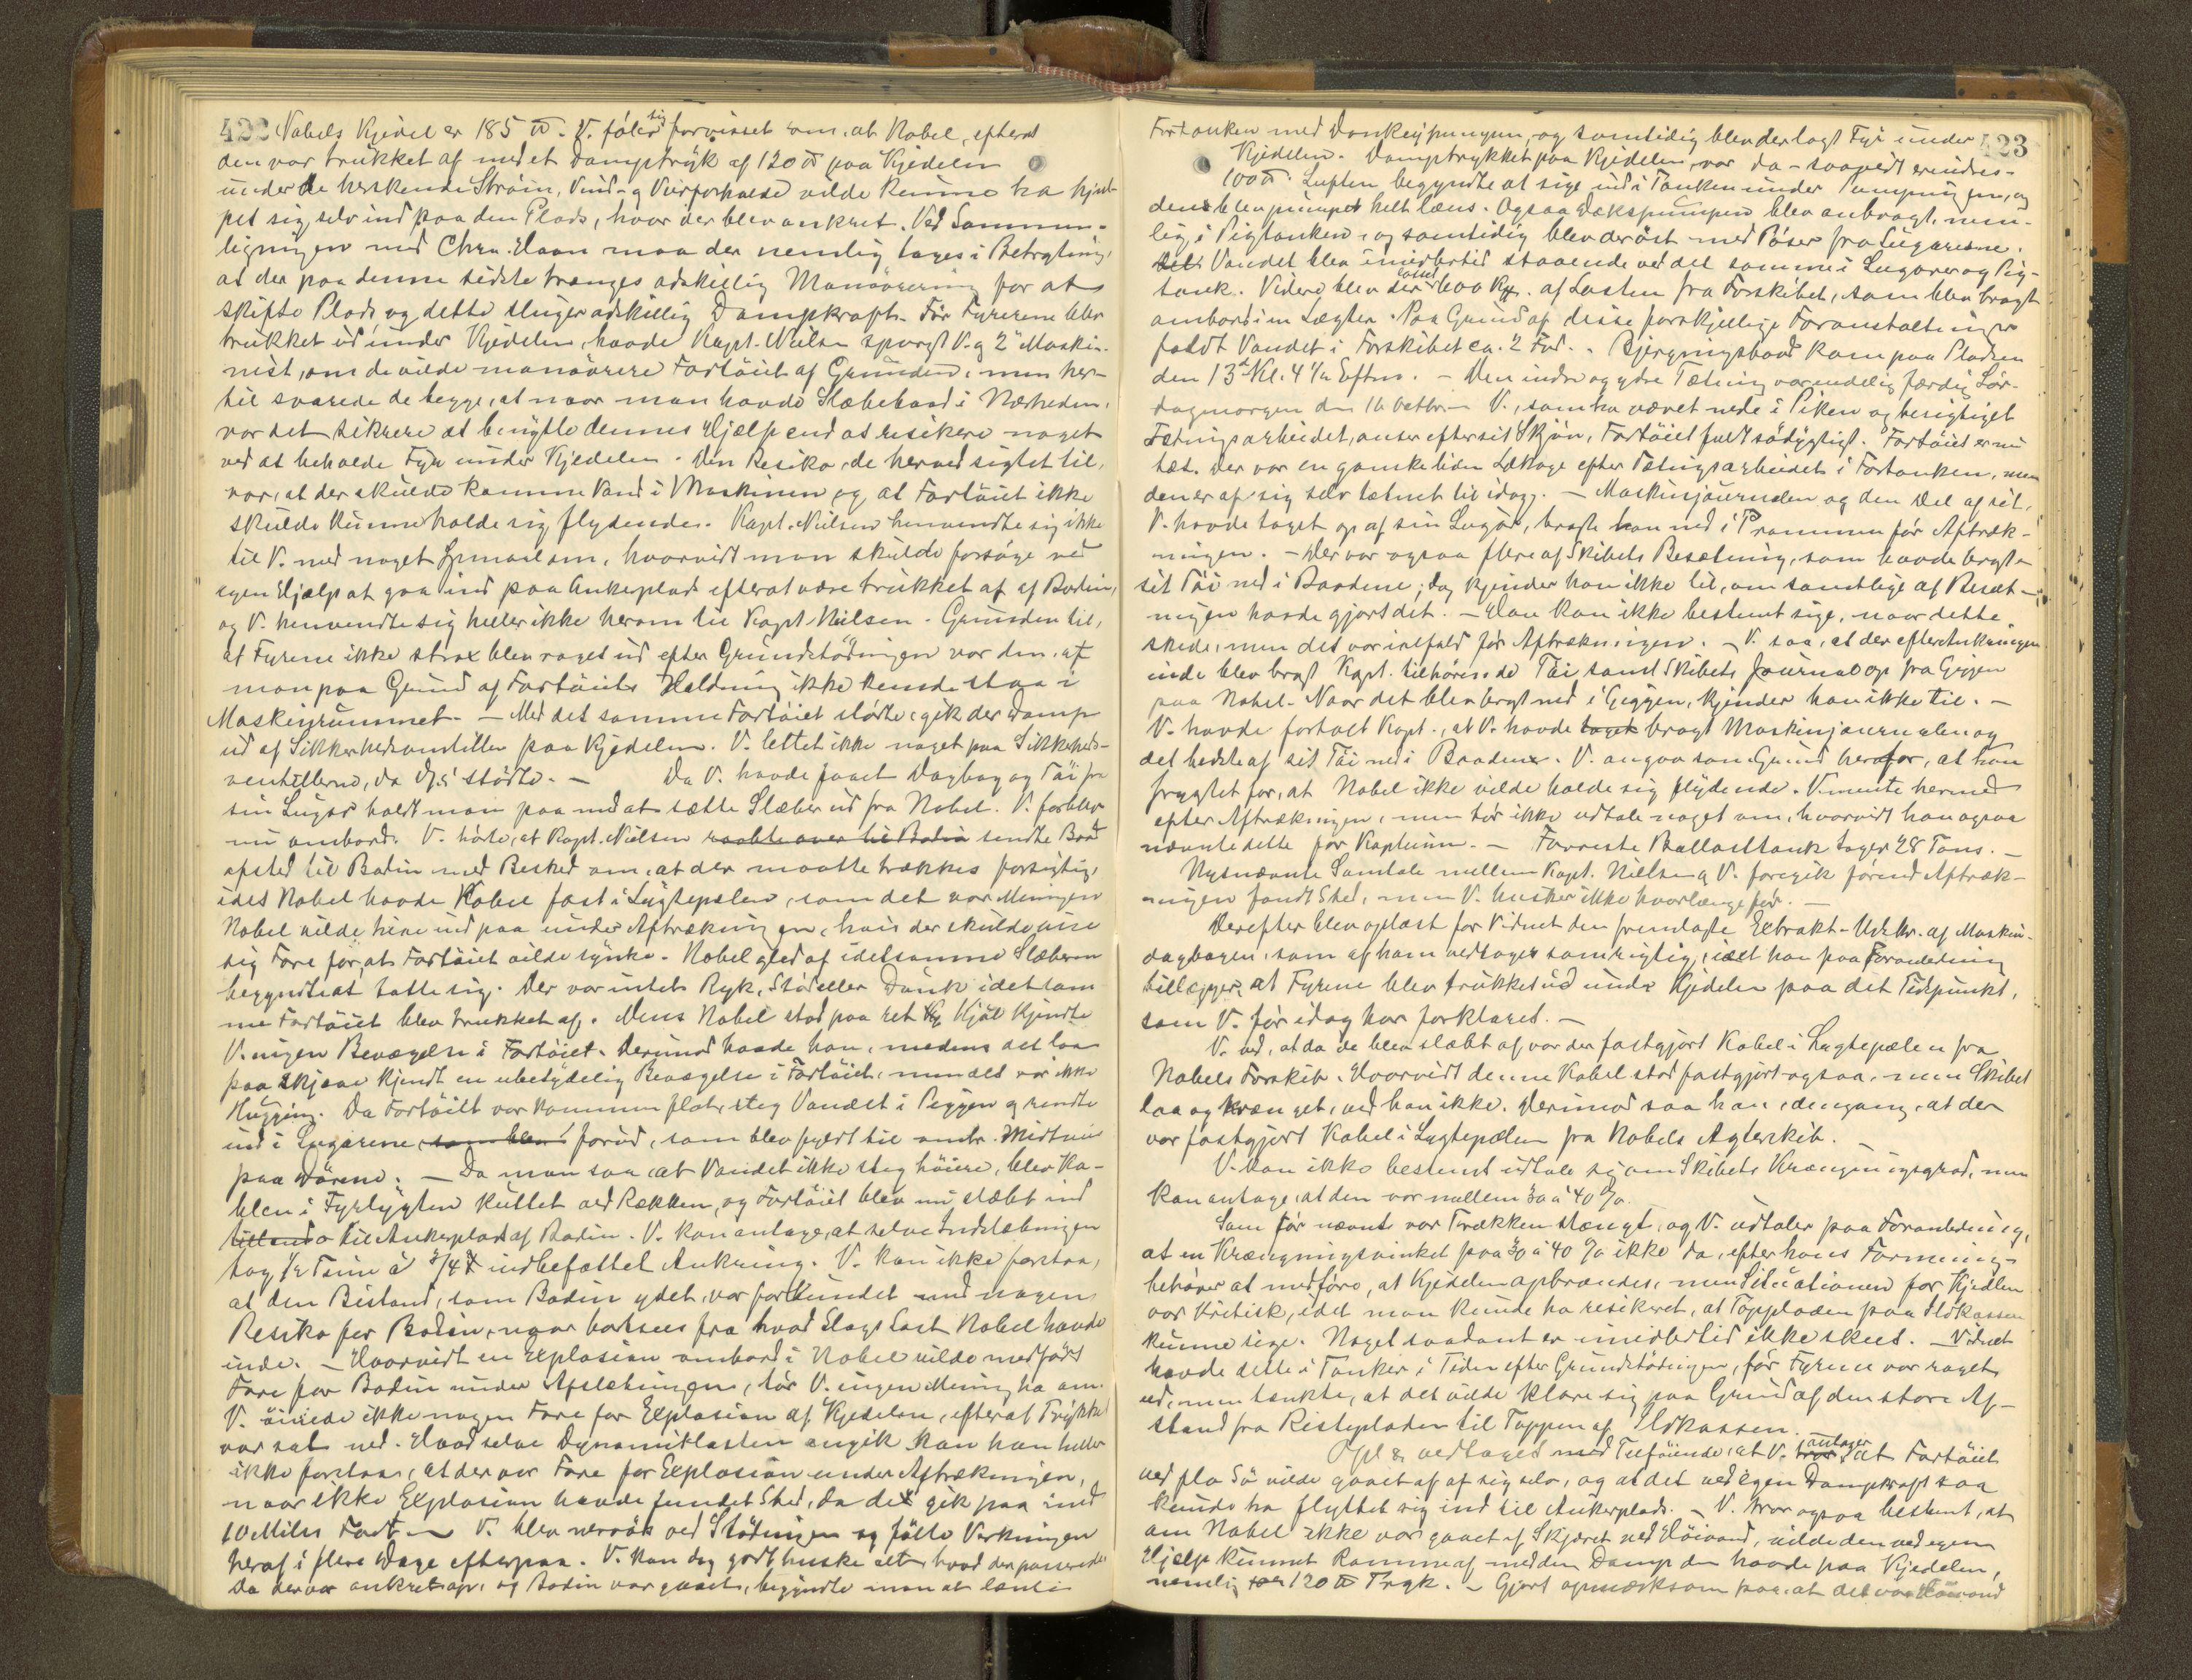 422 Nobels Kjedel er 185 ℔. V. føler sig forvisset om, at Nobel, efterat
den var trukket af med et Damptryk af 120 ℔ paa Kjedelen
under de herskende Strøm, Vind- og Veirforholde vilde kunne ha hjul-
pet sig selv ind paa den Plads, hvor der blev ankret. Ved Sammen-
ligningen med Chrn. Haan maa der nemlig tages i Betragtning,
at der paa denne sidste trænges adskillig Manøvrering for at
skifte Plads og dette sluger adskillig Dampkraft. Før Fyrerne blev
trukket ud under Kjedelen, havde Kapt. Nielsen spurgt V. og 2' Maskin-
nist, om de vilde manøvrere Fartøiet af Grunden, men her-
til svarede de begge, at naar man havde Slæbebaad i Nærheden,
var det sikrere at benytte dennes Hjælp end at risikere noget
ved at beholde Fyr under Kjedelen. Den Risiko, de herved sigtet til,
var, at der skulde komme Vand i Maskinen og at Fartøiet ikke
skulde kunne holde sig flydende. Kapt. Nielsen henvendte sig ikke
til V. med noget Spørsmaal om, hvorvidt man skulde forsøge ved
egen Hjælp at gaa ind paa Ankerplads efterat være trukket af af Bodin,
og V. henvendte sig heller ikke herom til Kapt. Nielsen. Grunden til,
at Fyrene ikke strax blev raget ud efter Grundstødningen var den, at
man paa Grund af Fartøiets Heldning ikke kunde staa i
Maskinrummet. — Med det samme Fartøiet stødte, gik der Damp
ud af Sikkerhedsventillen paa Kjedelen. V. lettet ikke noget paa Sikkerheds-
ventillerne, da Dpsk. stødte. — Da V. havde faaet Dagbog og Tøi fra
sin Lugar holdt man paa med at sætte Slæber ud fra Nobel. V. forblev
nu ombord. V. hørte, at Kapt. Nielsen raabte over til Bodin sendte Baad
afsted til Bodin med Besked om, at der maatte trækkes forsigtig,
idet Nobel havde Kabel fast i Lygtepælen, som det var Meningen
Nobel vilde hive ind paa under Aftrækningen, hvis der skulde vise
sig Fare for, at Fartøiet vilde synke. Nobel gled af idetsamme Slæberen
begyndte at totte sig. Der var intet Ryk, Stød eller Dunk idetsam-
me Fartøiet blev trukket af. Mens Nobel stod paa ret Kjøl kjendte
V. ingen Bevægelse i Fartøiet. Derimod havde han, medens det laa
paa skjeve kjendt en ubetydelig Bevægelse i Fartøiet, men det var ikke
Hugging. Da Fartøiet var kommen flot, steg Vandet i Piggen og rendte
ind i Lugarene, som blev forud, som blev fyldt til omtr. Midtveis
paa Dørene. — Da man saa, at Vandet ikke steg høiere, blev Ka-
blen i Fyrlygten kuttet ved Rækken, og Fartøiet blev nu slæbt ind
til Ankerplads af Bodin. V. kan antage, at selve Indslæbningen
tog ½ Time à ¾ T. indbefattet Ankring. V. kan ikke forstaa,
at den Bistand, som Bodin ydet, var forbundet med nogen
Resiko for Bodin, naar bortsees fra hvad Slags Last Nobel havde
inde. — Hvorvidt en Explosion ombord i Nobel vilde medført
Fare for Bodin under Afslæbningen, tør V. ingen Mening ha om.
V. øinede ikke nogen Fare for Explosion af Kjedelen, efterat Trykket
var sat ned. Hvad selve Dynamitlasten angik kan han heller
ikke forstaa, at der var Fare for Explosion under Aftrækningen,
naar ikke Explosion havde fundet Sted, da det gik paa med
10 Miles Fart. — V. blev nervøs ved Stødningen og følte Virkningen
heraf i flere Dage efterpaa. V. kan dog godt huske alt, hvad der passerede.
Da der var ankret op, og Bodin var gaaet, begyndte man at lænse
423
Fortanken med Donkeypumpen, og samtidig blev der lagt Fyr under
Kjedelen. Damptrykket paa Kjedelen var da – saavidt erindres –
100 ℔. Luften begyndte at sige ind i Tanken under Pumpningen, og
den blev pumpet helt læns. Ogsaa Dækspumpen blev anbragt, nem-
lig i Pigtanken, og samtidig blev der øst med Pøser fra Lugarerne.
Vandet blev imidlertid staaende ved det samme i Lugarer og Pig-
tank. Videre blev der losset 600 Kgr. af Lasten fra Forskibet, som blev bragt
ombord i en Lægter. Paa Grund af disse forskjellige Foranstaltninger
faldt Vandet i Forskibet ca. 2 Fod. Bjergningsbaad kom paa Pladsen
den 13de Kl. 4 ½ Eftm. — Den indre og ydre Tætning var endelig færdig Lør-
dagmorgen den 16 Octbr. — V., som ha været nede i Piken og besigtiget
Tætningsarbeidet, anser efter sit Skjøn, Fartøiet fuldt sødygtigt. Fartøiet er nu
tæt. Der var en ganske liden Lækage efter Tætingsarbeidet i Fortanken, men
den er af sig selv tætnet til idag. — Maskinjournalen og den Del af sit,
V. havde taget op af sin Lugar, bragte han ned i Prammen før Aftræk-
ningen. — Der var ogsaa flere af Skibets Besætning, som havde bragt
sit Tøi ned i Baadene; dog kjender han ikke til, om samtlige af Besæt-
ningen havde gjort det. — Han kan ikke bestemt sige, naar dette
skede, men det var ialfald før Aftrækningen. — V. saa, at der efter Ankringen
inde blev bragt Kapt. tilhørende Tøi samt Skibets Journal op fra Giggen
paa Nobel. Naar det blev bragt ned i Giggen, kjender han ikke til. —
V. havde fortalt Kapt., at V. havde taget bragt Maskinjournalen og
det bedste af sit Tøi ned i Baadene. V. angav som Grund herfor, at han
frygtet for, at Nobel ikke vilde holde sig flydende. V. mente hermed
efter Aftrækningen, men tør ikke udtale noget om, hvorvidt han ogsaa
nævnte dette for Kapteinen. — Forreste Ballasttank tager 28 Tons. —
Nysnævnte Samtale mellem Kapt. Nielsen og V. foregik førend Aftræk-
ningen fandt Sted, men V. husker ikke hvorlænge før. —
Derefter blev oplæst for Vidnet den fremlagte Extrakt-Udskr. af Maskin-
dagbogen, som af ham vedtages som rigtig, idet han paa Foranledning
tillægger, at Fyrene blev trukket ud under Kjedelen paa det Tidspunkt,
som V. før idag har forklaret. —
V. ved, at da de blev slæbt af var der fastgjort Kabel i Lygtepælen fra
Nobels Forskib. Hvorvidt denne Kabel stod fastgjort ogsaa, men Skibet
laa og krænget, ved han ikke. Derimod saa han, dengang, at der
var fastgjort Kabel i Lygtepælen fra Nobels Agterskib. —
V. kan ikke bestemt udtale sig om Skibets Krængningsgrad, men
kan antage, at den var mellem 30 à 40 %.
Som før nævnt var Trækken stængt, og V. udtaler paa Foranledning,
at en Krængningsvinkel paa 30 à 40 % ikke da, efter hans Formening
behøver at medføre, at Kjedelen opbrændes, men Situationen for Kjedlen
var Kritisk, idet man kunde ha resikeret, at Toppladen paa Ildkassen
kunne sige. Noget saadant er imidlertid ikke skeet. — Vidnet
havde dette i Tanker i Tiden efter Grundstødningen, før Fyrene var raget
ud, men tænkte, at det vilde klare sig paa Grund af den store Af-
stand fra Ristepladen til Toppen af Ildkassen.
Opl. & vedtaget med Tilføiende, at V. tror antager at Fartøiet
ved flo Sø vilde gaaet af af sig selv, og at det ved egen Dampkraft saa
kunde ha flyttet sig ind til Ankerplads. — V. tror ogsaa bestemt, at
om Nobel ikke var gaaet af Skjæret ved Høivand, vilde den ved egen
Hjælp kunnet komme af med den Damp den havde paa Kjedelen,
nemlig 120 ℔ Tryk. — Gjort opmærksom paa, at det var Høivand